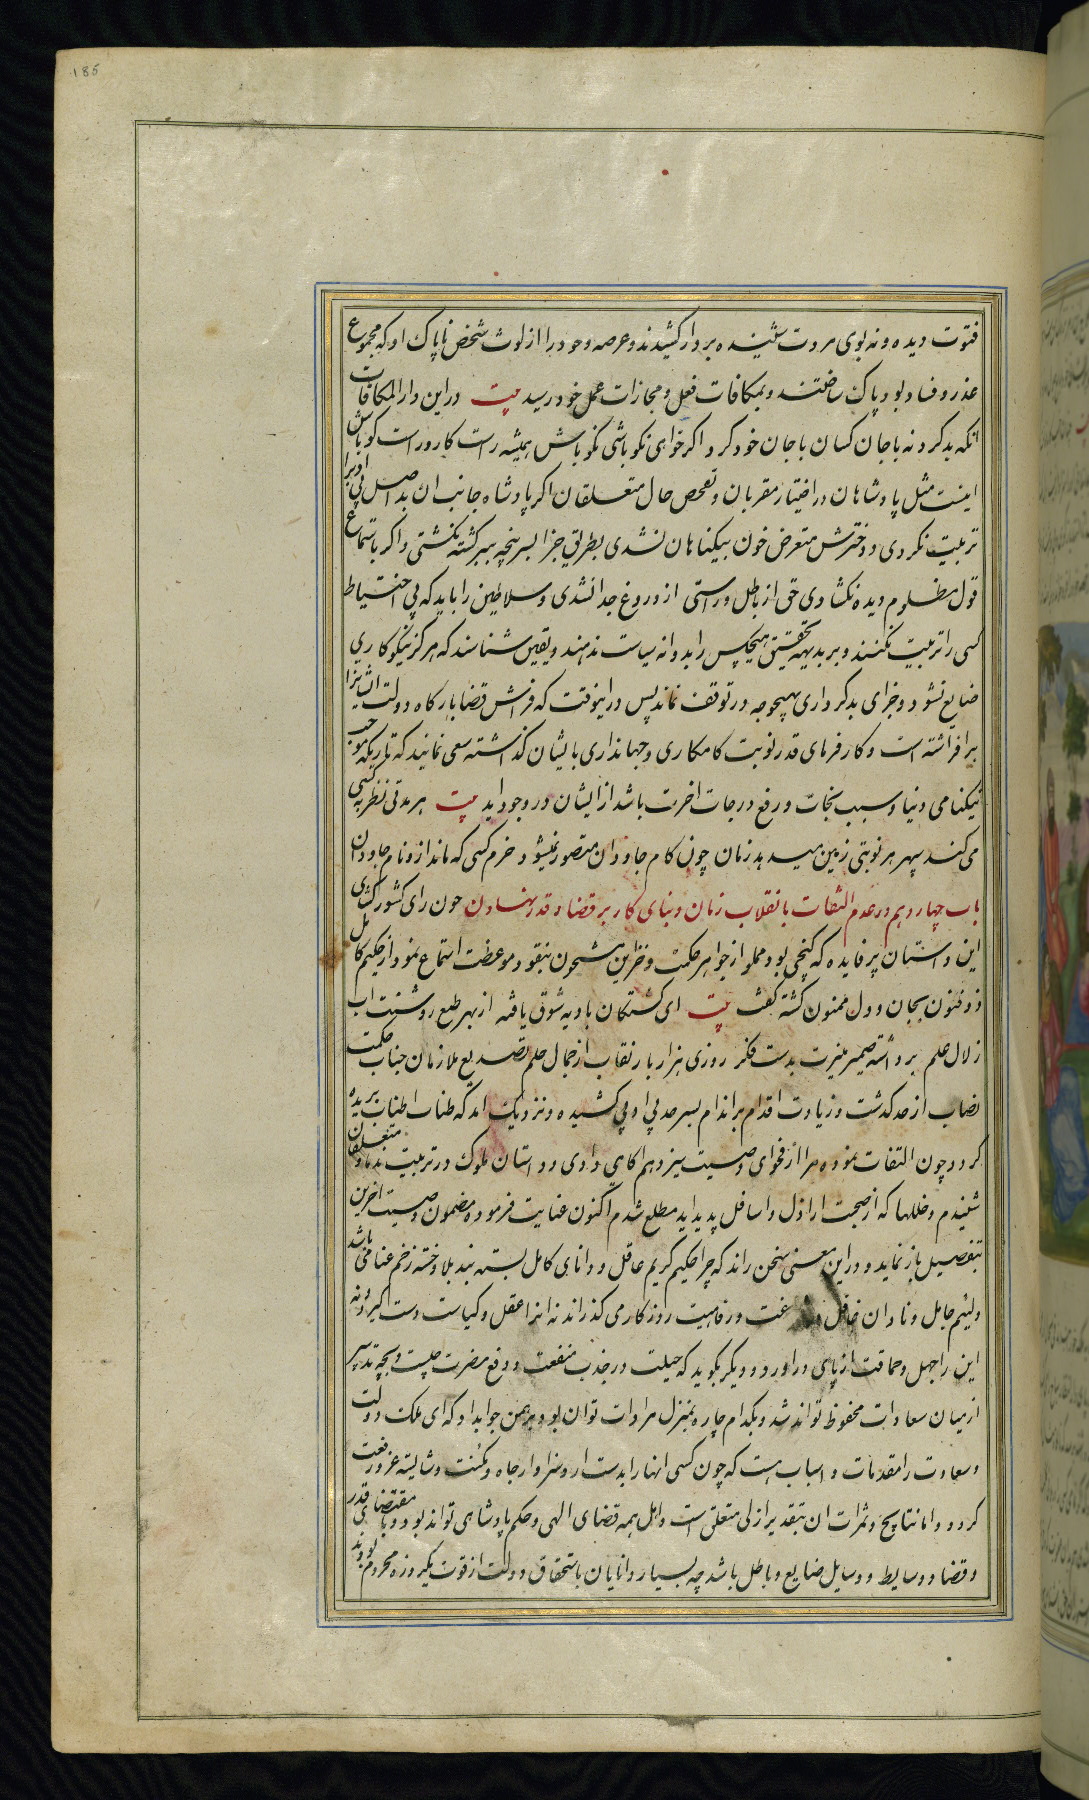 185
فتوت دیده و نه بوی مروت شنیده بردار کشیدند و عرصه وجود را از لوث شخص ناپاک او که مجموع
غدر و فساد بود پاک ساختند و بمکافات فعل و مجازات عمل خود رسید بیت در این دار المکافات
انکه بد کرد نه با جان کسان با جان خود کرد اکر خواهی نکو باشی نکو باش همیشه راست کار و راست کو باش
اینست مثل پادشاهان در اختیار مقربان و تفحص حال متعلقان اکر پادشاه جانب ان بد اصل بی او برا
تربیت نکردی و دخترش متعرض خون بیکناهان نشدی بطریق جزا بسر پنجه ببر کشته نکشتی و اکر باستماع
قول مظلوم دیده نکشادی حق از باطل و راستی از دروغ جدا نشدی و سلاطین را باید که بی احتیاط
کسی را تربیت نکنند و بر بدیهه تحقیق هیچکس را پروانه سیاست ندهند و یقین شناسند که هرکز نیکوکاری
ضایع نشود و جزای بدکرداری بهیچوجه در توقف نماند پس در اینوقت که فراش قضا بارکاه دولت اینرا
بر افراشته است و کارفرمای قدر نوبت کامکاری و جهانداری بایشان کذاشته سعی نمایند که تا ریکه موجب
نیکنامی دنیا و سبب نجات و رفع درجات اخرت باشد از ایشان در وجود اید بیت هر مدتی نظر به کسی
می کند سپهر هر نوبتی زمین میدهد زمان چون کام جاودان متصور نمیشود خرم کسی که ماند ازو نام جاودان
باب چهاردهم در عدم التفات بانقلاب زمان و بنای کار بر قضا و قدر نهادن چون رای کشور کشای
این داستان پر فایده که کنجی بود مملو از جواهر حکمت و خزاین مشحون بنقود موعضت استماع نمود از حکیم کامل
ذوفنون بجان و دل ممنون کشته کفت بیت ای تشنکان بادیه شوق یافته از بهر طبع روشنت اب
زلال علم برداشته ضمیر منیرت بدست فکر روزی هزار بار نقاب از جمال حلم تصدیع ملازمان جناب حکمت
نصاب از حد کذشت و زیادت اقدام بر اندام بسر حد پی او پی کشیده و نزدیکت امد که طناب اطناب بریده
کردد چون التفات نموده مرا از فحوای وصیت سیزدهم اکاهی دادی و داستان ملوک در تربیت بدنهاد متعلقان
شنیدم و خللها که از صحبت اراذل و اسافل پدید اید مطلع شدم اکنون عنایت فرموده مضمون وصیت اخرین
بتفصیل باز نماید و در این معنی سخن راند که چرا حکیم کریم عاقل و دانای کامل بسته بند بلا و خسته زخم عنا می باشد
و لئیم جاهل و نادان غافل در غت و رفاهیت روزکار می کذراند نه انرا عقل و کیاست دست کیرد و نه
این را جهل و حماقت از پای در اورد و دیکر بکوید که حیلت در جذب منفعت و دفع مضرت چیست و بچه تدبیر
از میان سعادات محفوظ تواند شد و بکدام چاره بمنزل مرادات توان بود برهمن جواب داد که ای ملک دولت
و سعادت را مقدمات و اسباب هست که چون کسی انها را بدست ارد سزاوار جاه و مکنت و شایسته عز و رفعت
کردد و اما نتایج و ثمرات ان بتقدیر ازلی متعلق است و اهل همه قضای الهی و حکم پادشاهی تواند بود و با مقتضای قدر
و قضا و وسایط و وسایل ضایع و باطل باشد چه بسیار دانایان باستحقاق دولت از قوت یکروزه محروم بودند